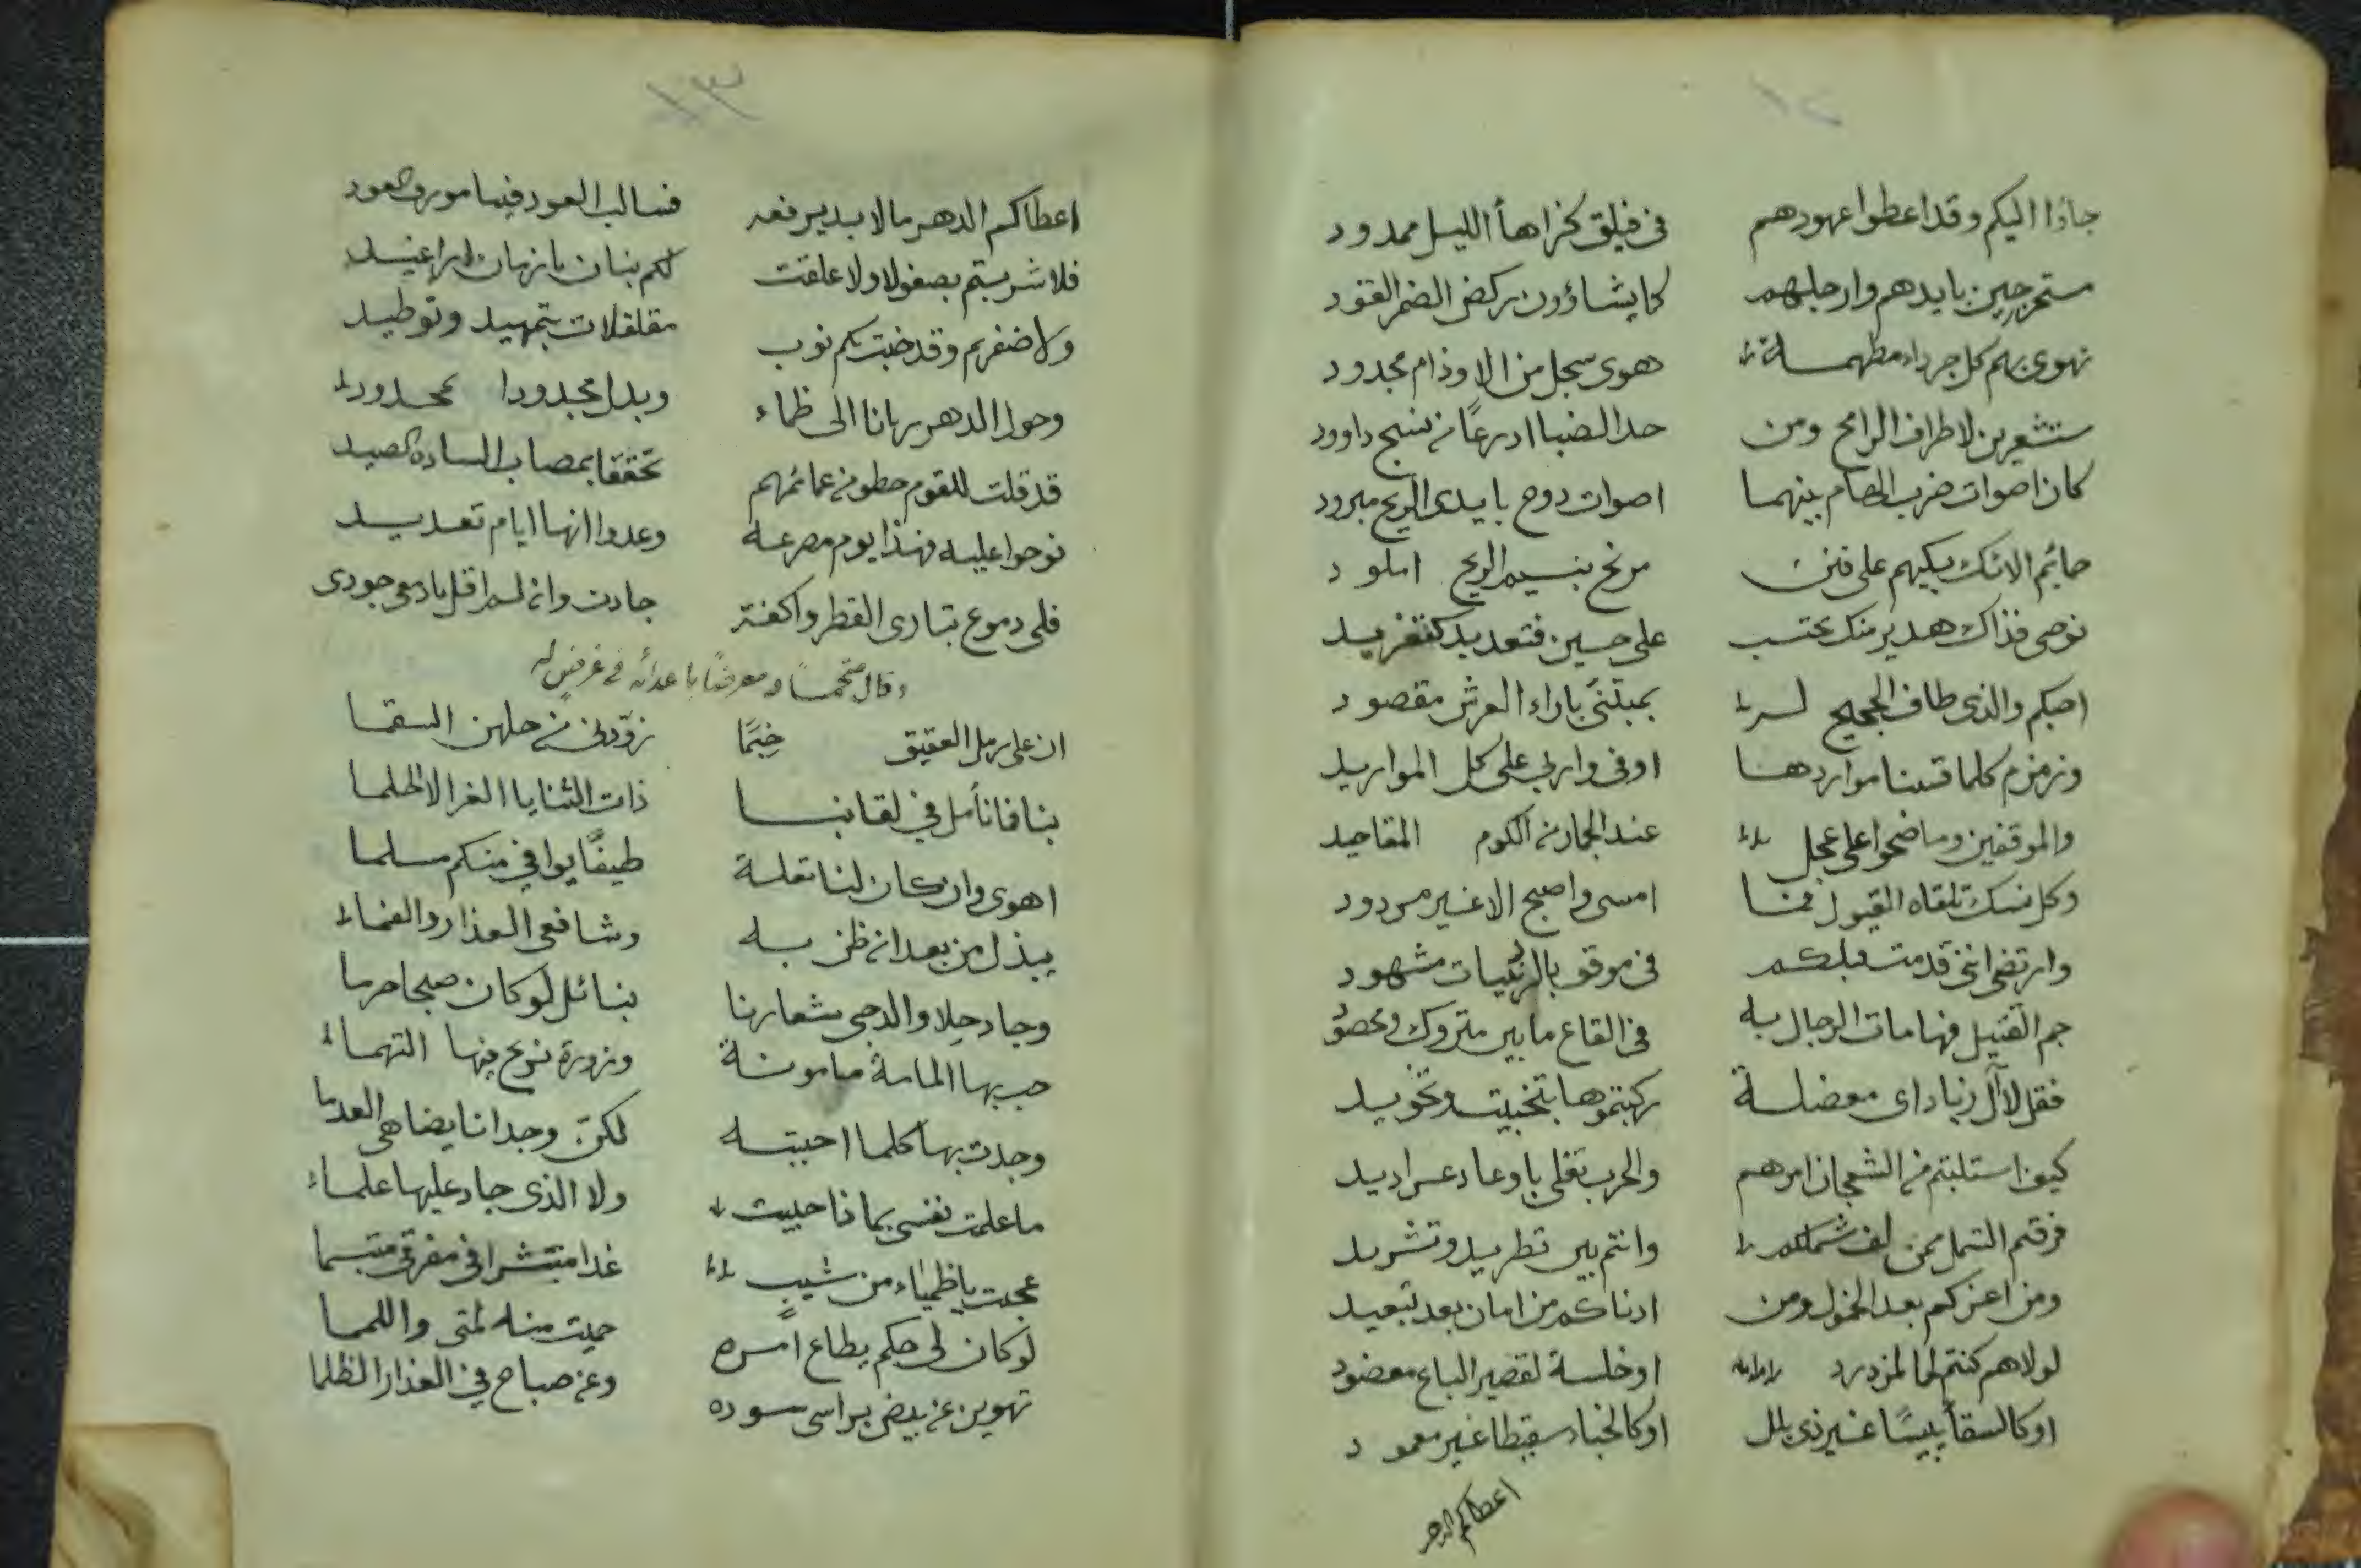 ١٢
جاؤا اليكم وقد اعطوا عهودهم في فيلق كزهاء الليل ممدود
مستمرحين بايدهم وارجلهم كما يشاؤون ركض الضمر القود
تهوى بهم كل جرداء مطهمة هوى سجل من الاوذام مجدود
مستشعرين لاطراف الرامح ومن حد الضبا ادرعًا من نسج داوود
كان اصوات ضرب الهام بينهما اصوات دوح بايدى الريح مبرود
حمايم الايك بكيهم على فنن مرنح بنسيم الريح املود
نوحى فذاك هدير منك محتسب على حسين فتعديد كتغريد
احبكم والذى طاف الحجيج له بمبتنًى بازاء العرش مقصود
وزمزم كلما قسنا مواردها اوفى واربى على كل المواريد
والموقفين وما ضحوا على عجل عند الجمار من الكوم المقاحيد
وكل نسك تلقاه القبول فما امسى واصبح الا غير مردود
وارتضى اننى قدمت قبلكم في موقف بالردينيات مشهود
جم القتيل فهامات الرجال به في القاع ما بين متروك ومحصود
فقل لآل زياد اى معضلة ركبتموها بتخبيت وتخويد
كيف استلبتم من الشجعان امرهم والحرب تغلى باوعاد عراديد
فرقتم الشمل ممن لف شملكم وانتم بين تطريد وتشريد
ومن اعزكم بعد الخمول ومن ادناكم من امان بعد تبعيد
لولاهم كنتم لحما لمزدرد او خلسة لقصير الباع معضود
او كالسقاء يبيسًا غير ذى بلل او كالخباء سقيطا غير معمود
اعطاكم الدهر
١٣
اعطاكم الدهر ما لا بد يرفعه فسالب العود فيها مورق العود
فلا شربتم بصفو لا ولا علقت لكم بنان بازمان اراغيد
ولا ضفرتم وقد جنت بكم نوب مقلقلات بتمهيد وتوطيد
وحول الدهر ريانا الى ظماء وبدل مجدودا بمحدود
قد قلت للقوم حطوا من عمائمهم تحققا بمصاب السادة الصيد
نوحوا عليه فهذا يوم مصرعه وعدوا انها ايام تعديد
فلى دموع تبارى القطر واكفة جادت وان لم اقل يا دمعى جودى
وقال متحمسًا ومعرضًا باعدائه في غرض له
ان على رمل العقيق خيمًا زودنى من حلهن السقما
بنا فانا نأمل في لقائنا ذات الثنايا الغر الا الحلما
اهوى وان كان لنا تعلة طيفًا يوافي منكم مسلما
يبذل من بعد ان ظن به وشافعى العذار والفماء
وجاد حلا والدجى شعارنا بنائل لو كان صبحا حرما
حب بها المامة مامونة وزورة نزح منها التهماء
وجدت بها كلما احببته لكن وجدانا يضاهى العدما
ما علمت نفسى بماذا حبيت ولا الذى جاد عليها علماء
عجبت يا ظمياء من شيب غدا منتشرا في مفرقى مبتسما
لو كان لى حكم يطاع امره حميت منه لمتى واللمما
تهوين عن بيض براسى سوده وعن صباح في العذار الظلما